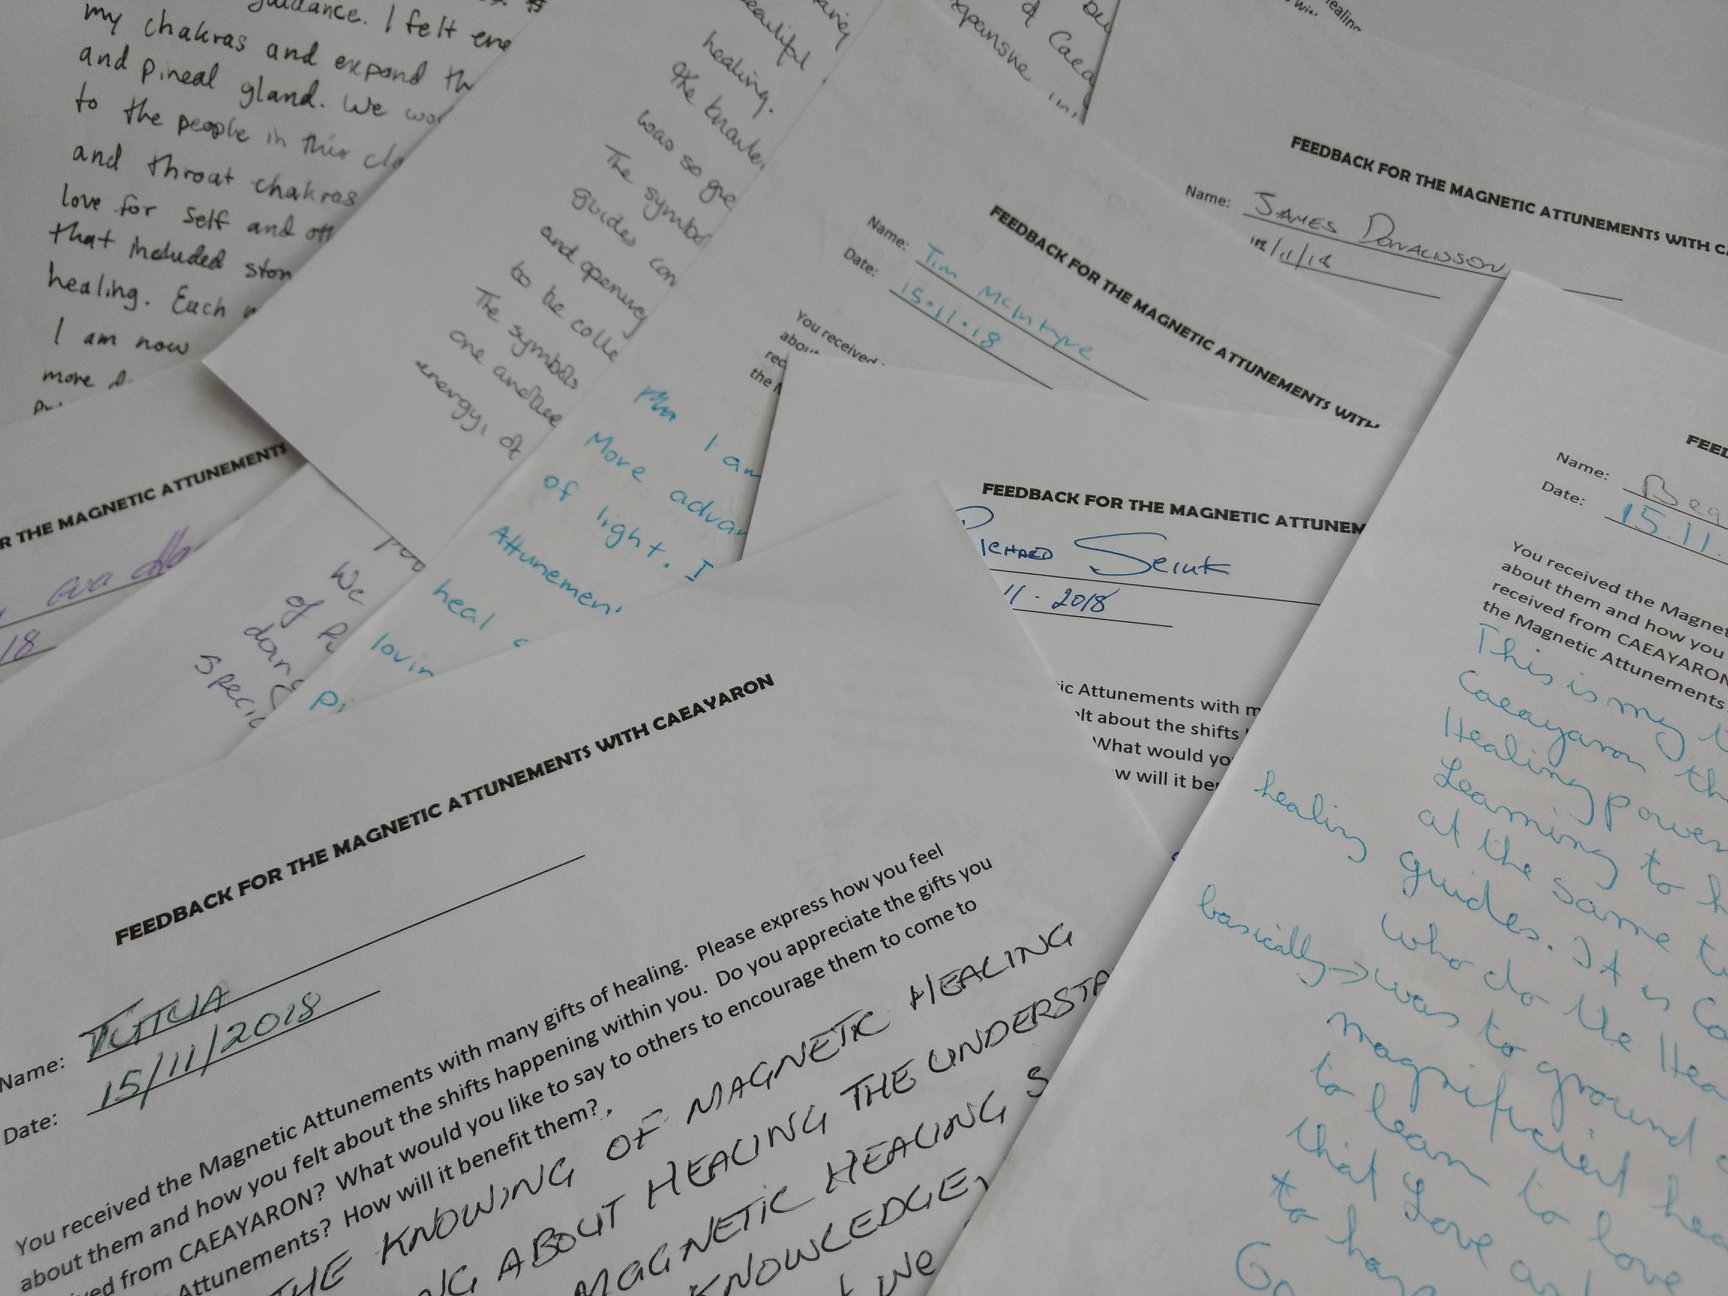 guidance. I felt ene
my chakras and expand th
and pineal gland. We wo
to the people in this cla
and throat chakras
love for self and oth
that included ston
healing. Each
I am now
more
beautiful
healing.
the knowle
was so gre
The symbol
guides con
and opening
to be colle
The symbols
one another
energy, of
expansive
Mm I am
More advan
of light. I
Attunemen
heal
lovin
R THE MAGNETIC ATTUNEMENTS
18
We
of
danc
speci
FEEDBACK FOR THE MAGNETIC ATTUNEMENTS WITH
Name: Tim McIntyre
Date: 15.11.18
You received
abou
rec
the M
FEEDBACK FOR THE MAGNETIC ATTUNEMENTS WITH CA
Name: JAMES DONALDSON
/11/18
FEEDBACK FOR THE MAGNETIC ATTUNEM
RICHARD Seiuk
11 . 2018
ic Attunements with m
lt about the shifts
What would yo
w will it be
FEED
Name: Bea
Date: 15.11.
You received the Magnet
about them and how you
received from CAEAYARON
the Magnetic Attunements
This is my t
Caeayaron th
Healing power
Learning to h
at the same t
healing guides. It is Co
who do the Hea
basically → was to ground
magnificient hea
to learn to love
that Love
to
Go
FEEDBACK FOR THE MAGNETIC ATTUNEMENTS WITH CAEAYARON
Name: TUTUA
Date: 15/11/2018
You received the Magnetic Attunements with many gifts of healing. Please express how you feel
about them and how you felt about the shifts happening within you. Do you appreciate the gifts you
ived from CAEAYARON? What would you like to say to others to encourage them to come to
Attunements? How will it benefit them?
THE KNOWING OF MAGNETIC HEALING
NG ABOUT HEALING THE UNDERSTA
MAGNETIC HEALING S
KNOWLEDGE,
we